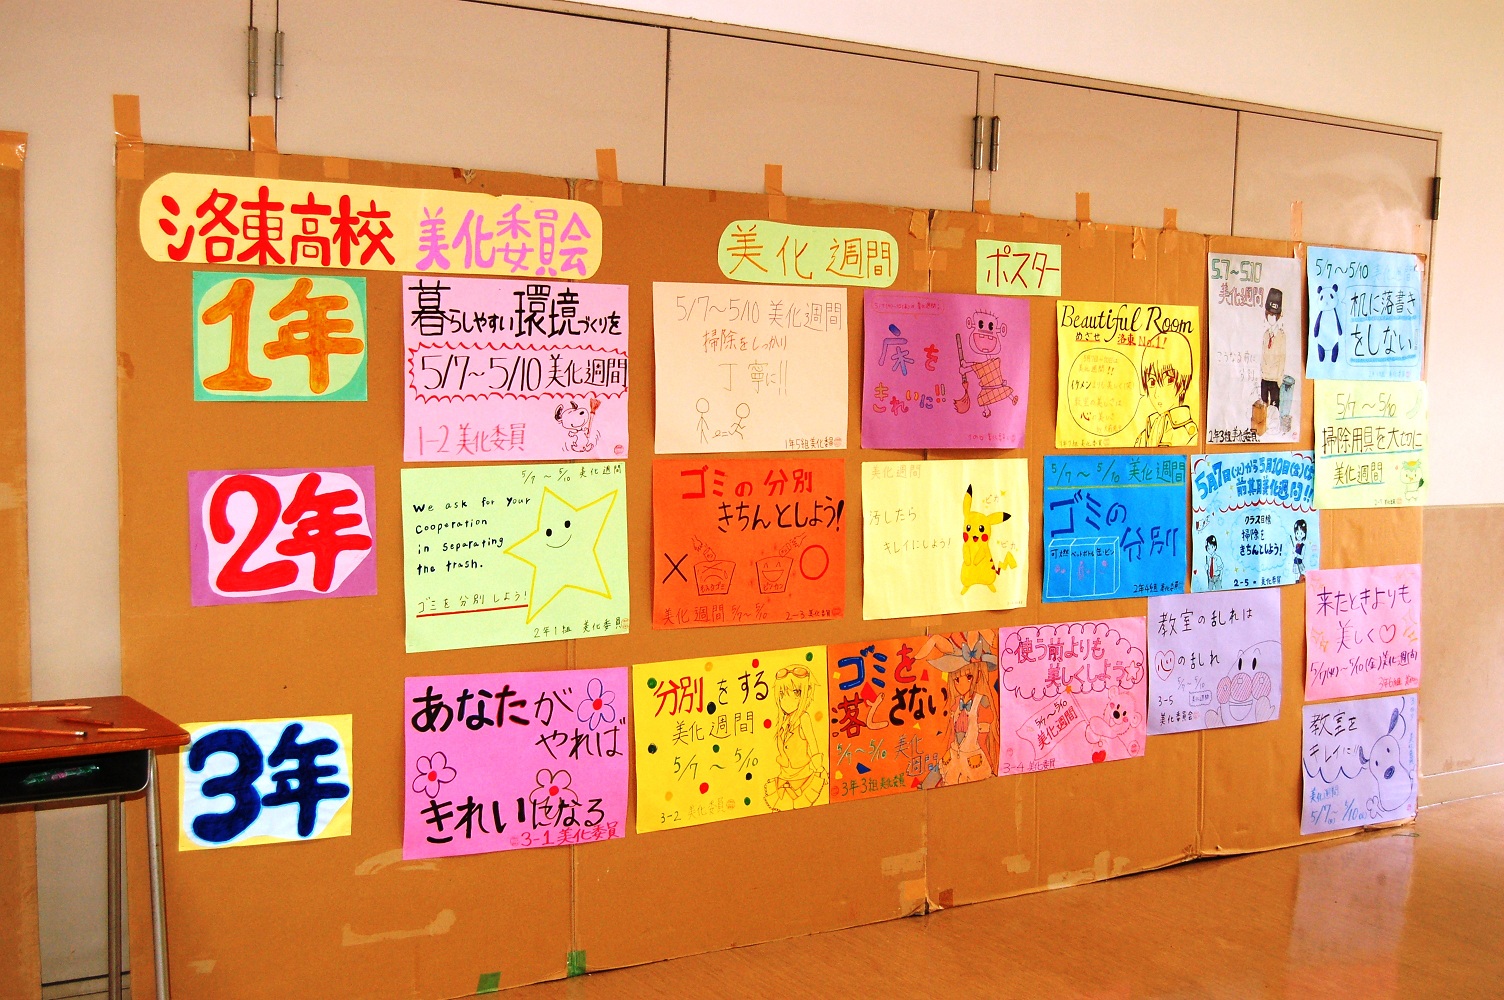 洛東高校 美化委員会
美化週間
ポスター
1年
暮らしやすい環境づくりを
5/7～5/10 美化週間
1-2 美化委員
5/7～5/10 美化週間
掃除をしっかり
丁寧に!!
1年5組美化委員
床を
きれいに!!
Beautiful Room
めざせ 洛東No.1!
5.7～5.10
美化週間
1年3組美化委員
5/7～5/10
机に落書き
をしない
5/7～5/10
掃除用具を大切に
美化週間
2年
5/7～5/10 美化週間
We ask for your
cooperation
in separating
the trash.
ゴミを分別しよう!
2年1組 美化委員
ゴミの分別
きちんとしよう!
もえるゴミ
ビンカン
美化週間 5/7～5/10 2-3 美化委員
美化週間
汚したら
キレイにしよう!
5/7～5/10 美化週間
ゴミの
分別
可燃 ペットボトル 缶・ビン
2年4組 美化委員
5月7日(火)から5月10日(金)は
前期美化週間!!
クラス目標
掃除を
きちんとしよう!
2-5 美化委員
来たときよりも
美しく♡
5/7(火)～5/10(金)美化週間
3年
あなたが
やれば
きれいになる
3-1 美化委員
分別をする
美化週間
5/7～5/10
3-2 美化委員
ゴミを
落とさない
5/7～5/10 美化
週間
3年3組美化委員
使う前よりも
美しくしよう
5/7～5/10
美化週間
3-4 美化委員
教室の乱れは
心の乱れ
5/7～5/10
美化週間
3-5
美化委員会
教室を
キレイに!
美化週間
5/7(火) 5/10(金)